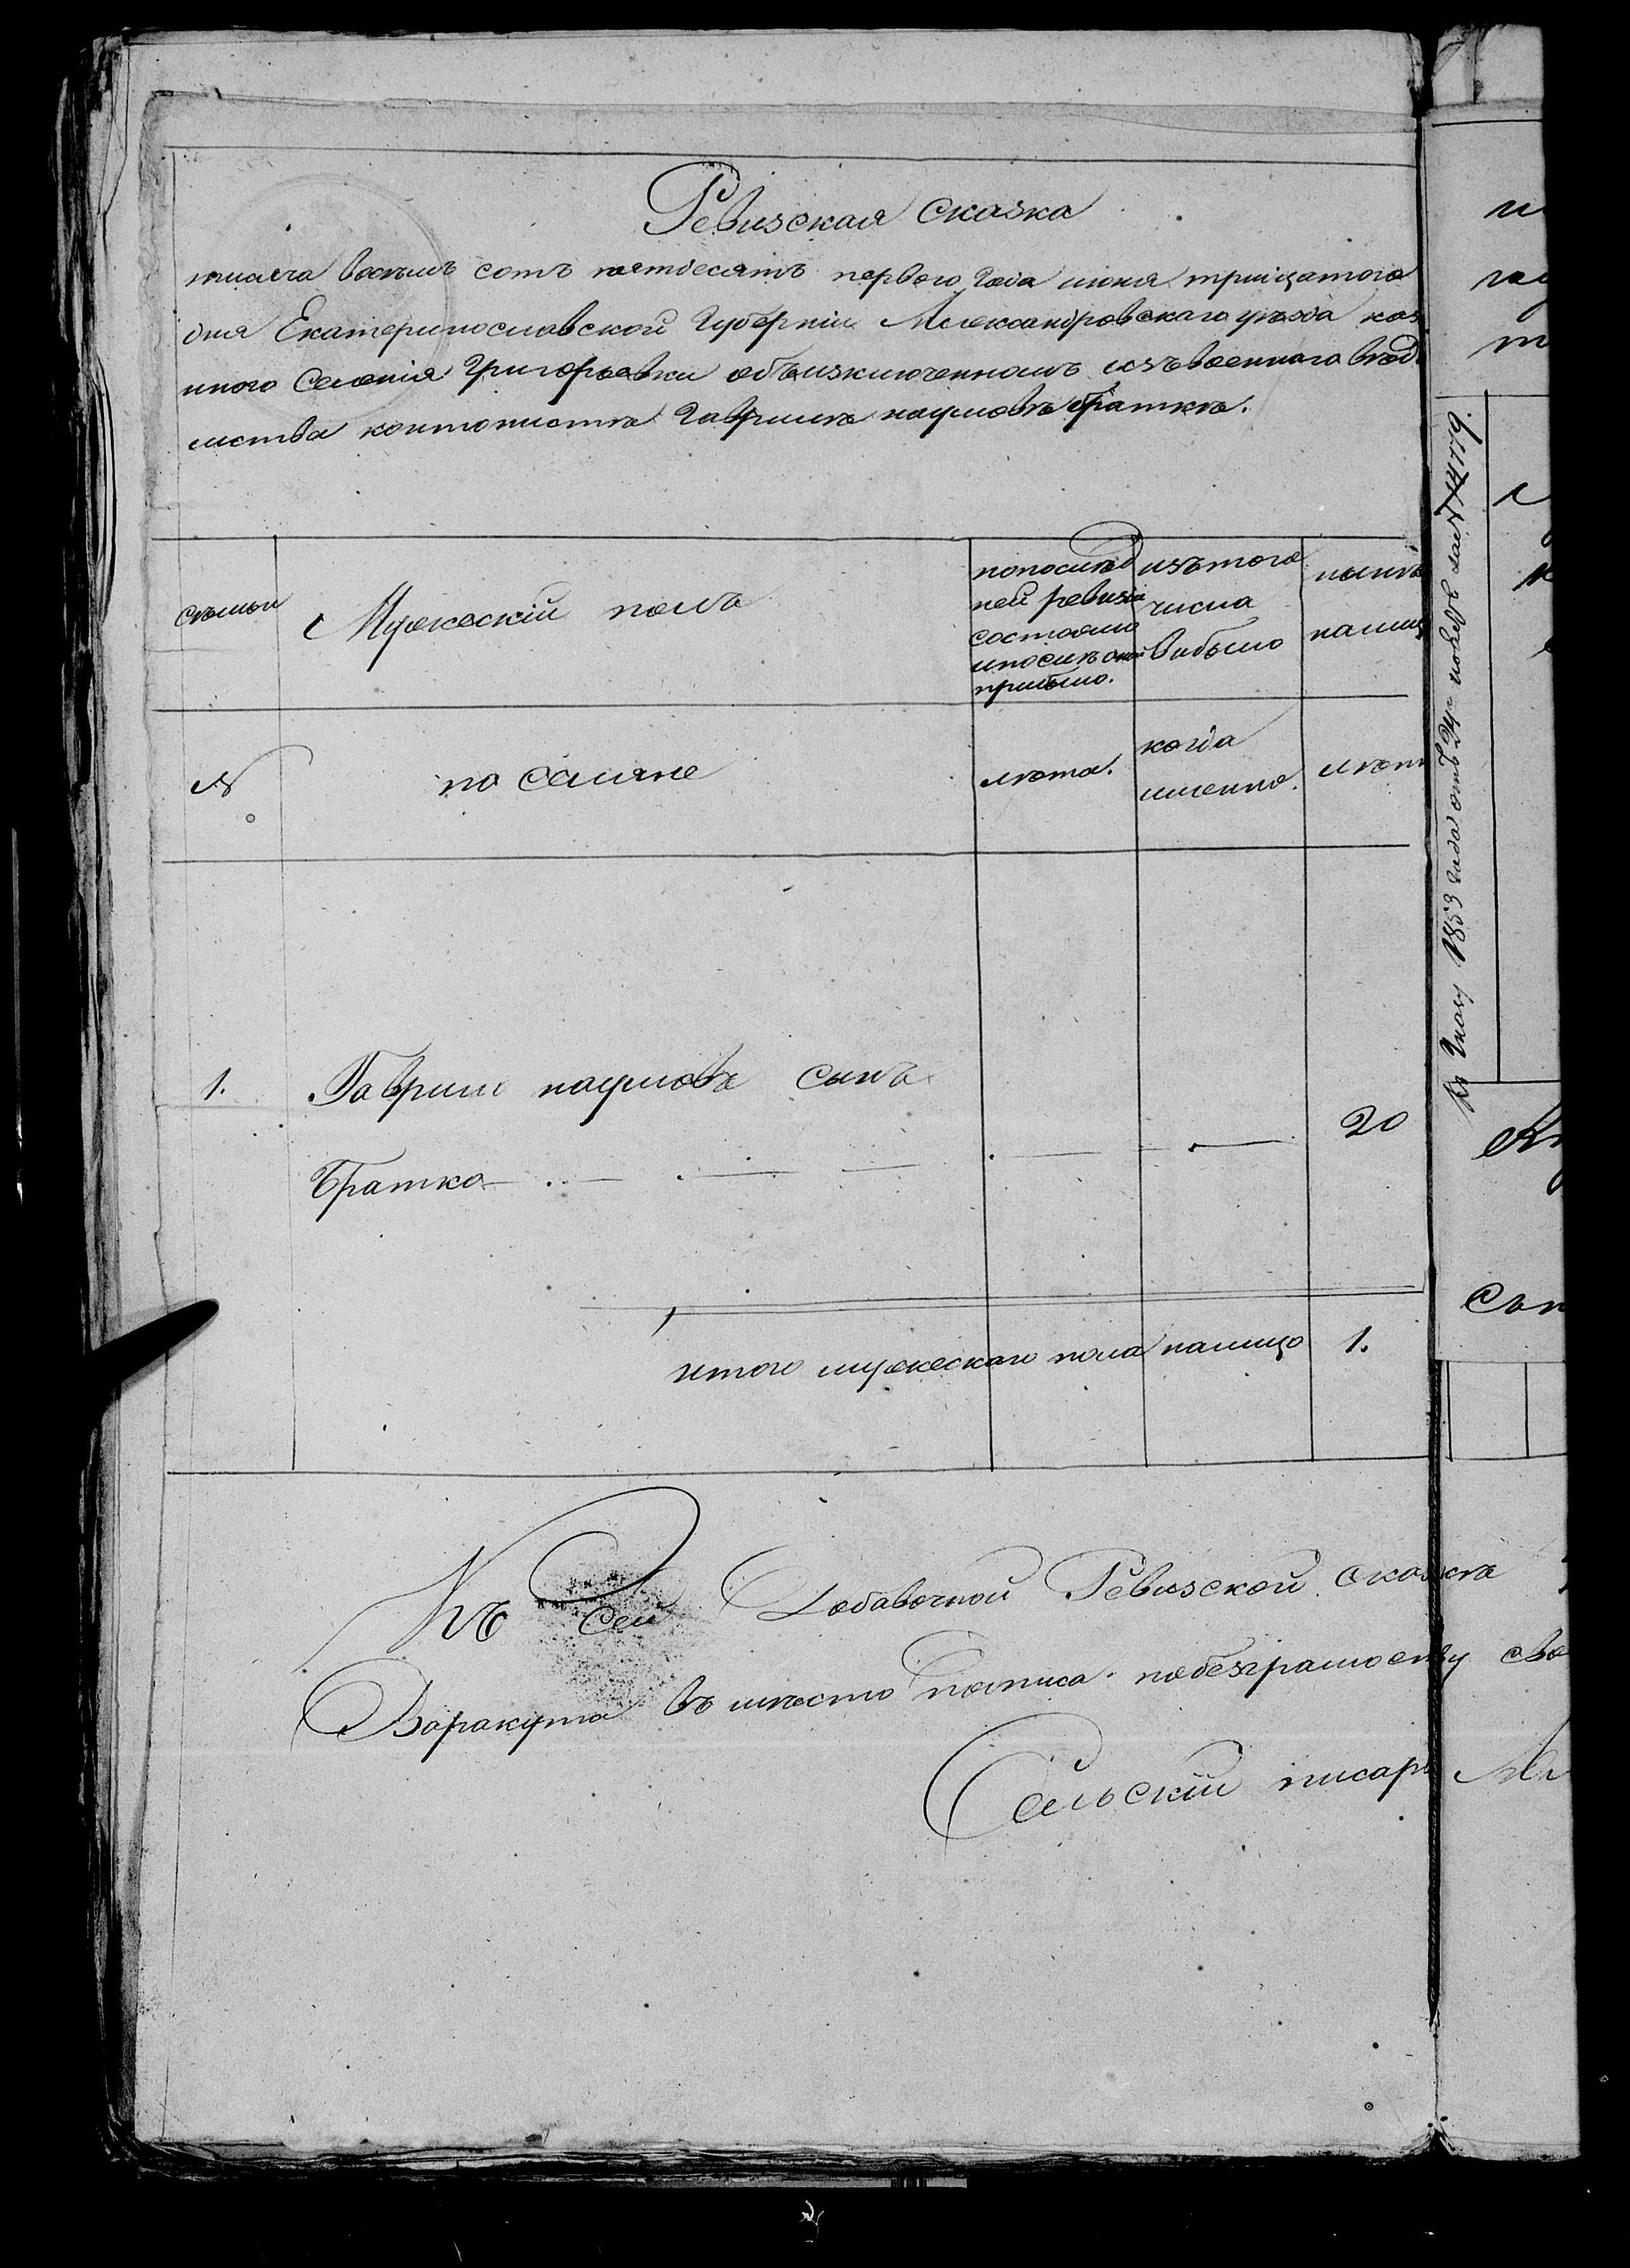 Ревизская сказка
тисяча восьмъ сотъ пятдесятъ перваго Года июня трицатого
дня Екатеринославской Губерніи Александровскаго уѣзда каз
нного Селенія Григорьевки объизключенномъ изъ военнаго вѣдо
мства контонистѣ Гаврилѣ наумовѣ браткѣ.
семьи
Мужескій полъ
попослѣд
ней ревизіи
состояло
ипослѣ оной
прибыло.
изътого
числа
вибыло
нынѣ
налиц
№
поселяне
лѣта.
когда
именно.
лѣт
1.
Гаврило наумовъ сынъ
Братко
20
итого мужескаго пола налицо 1.
Къ сей Добавочной Ревизской сказкѣ
Варакута въ мѣсто подписа побезграмоству сво
Сельскій писарь
1853 года отъ